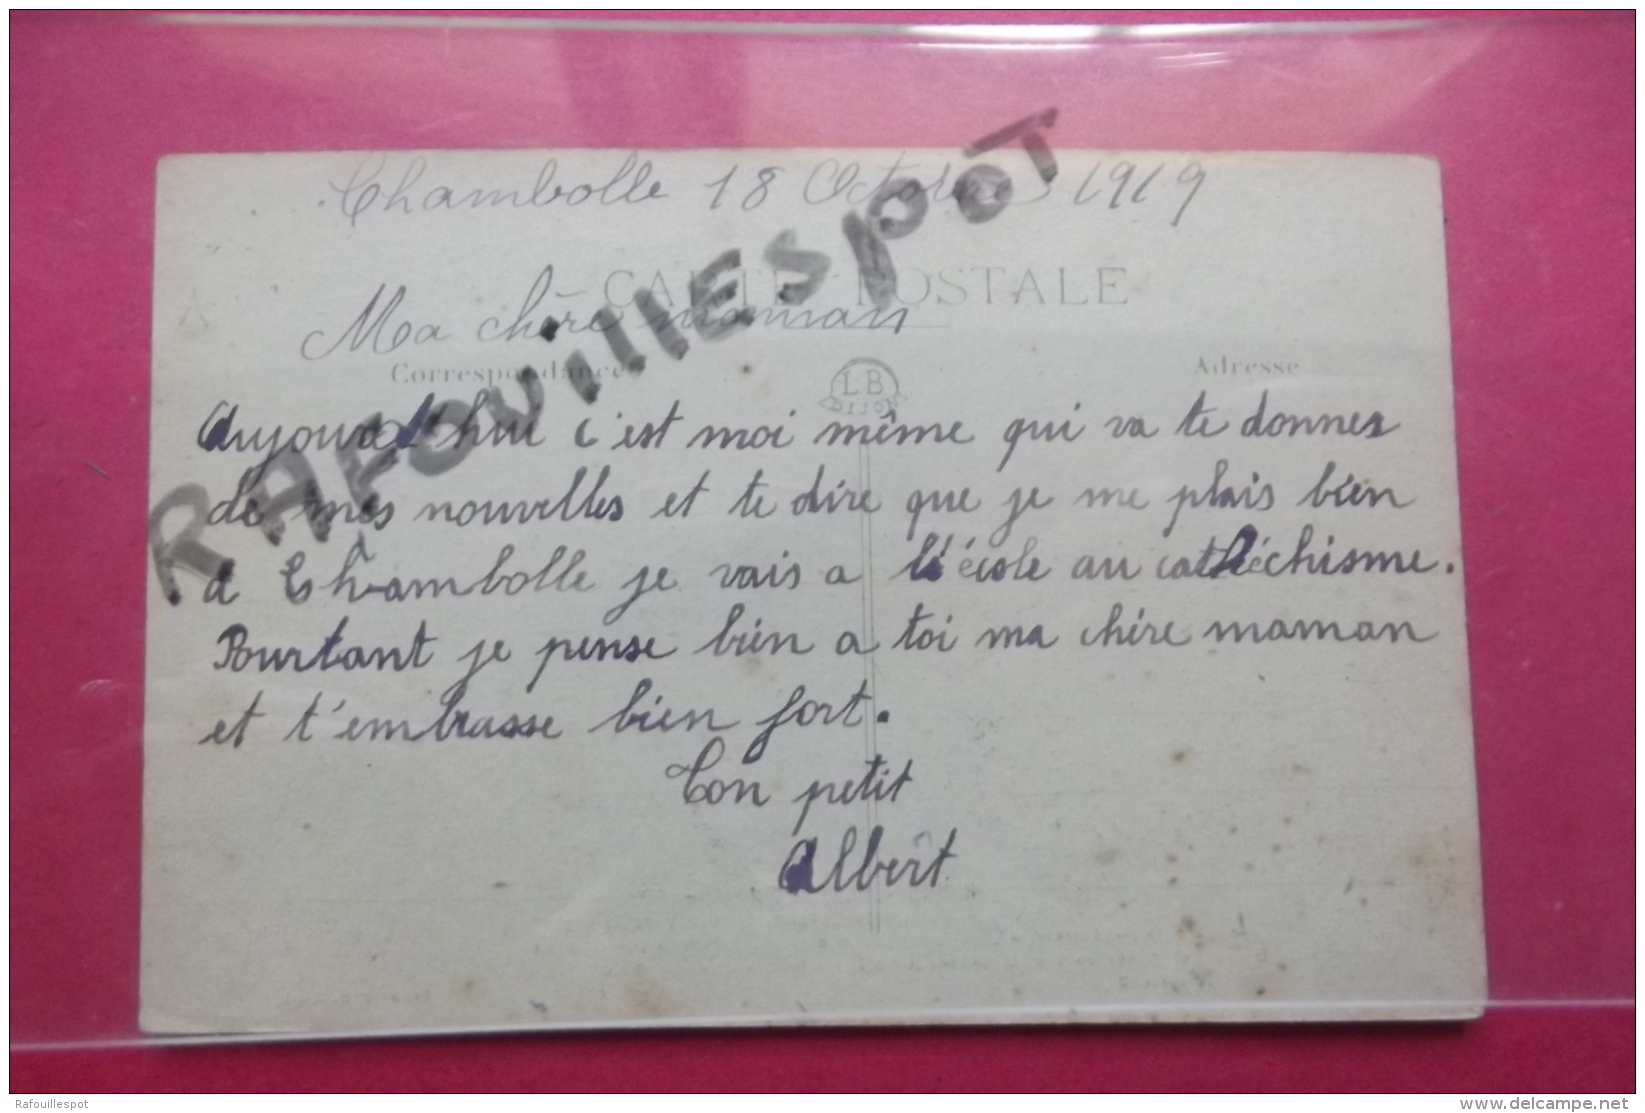 Chambolle 18 Octobre 1919
CARTE POSTALE
Ma chère maman
Correspondance
Adresse
LB
DIJON
Aujourd'hui c'est moi même qui va te donner
de mes nouvelles et te dire que je me plais bien
a Chambolle je vais a l'école au cathéchisme.
Pourtant je pense bien a toi ma chère maman
et t'embrasse bien fort.
Ton petit
Albert
RAFOUILLESPOT
Rafouillespot
www.delcampe.net